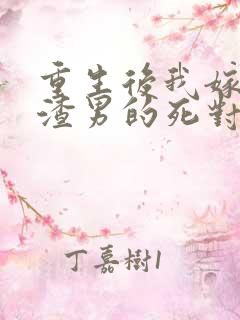 重生後我嫁
渣男的死對
丁嘉樹1